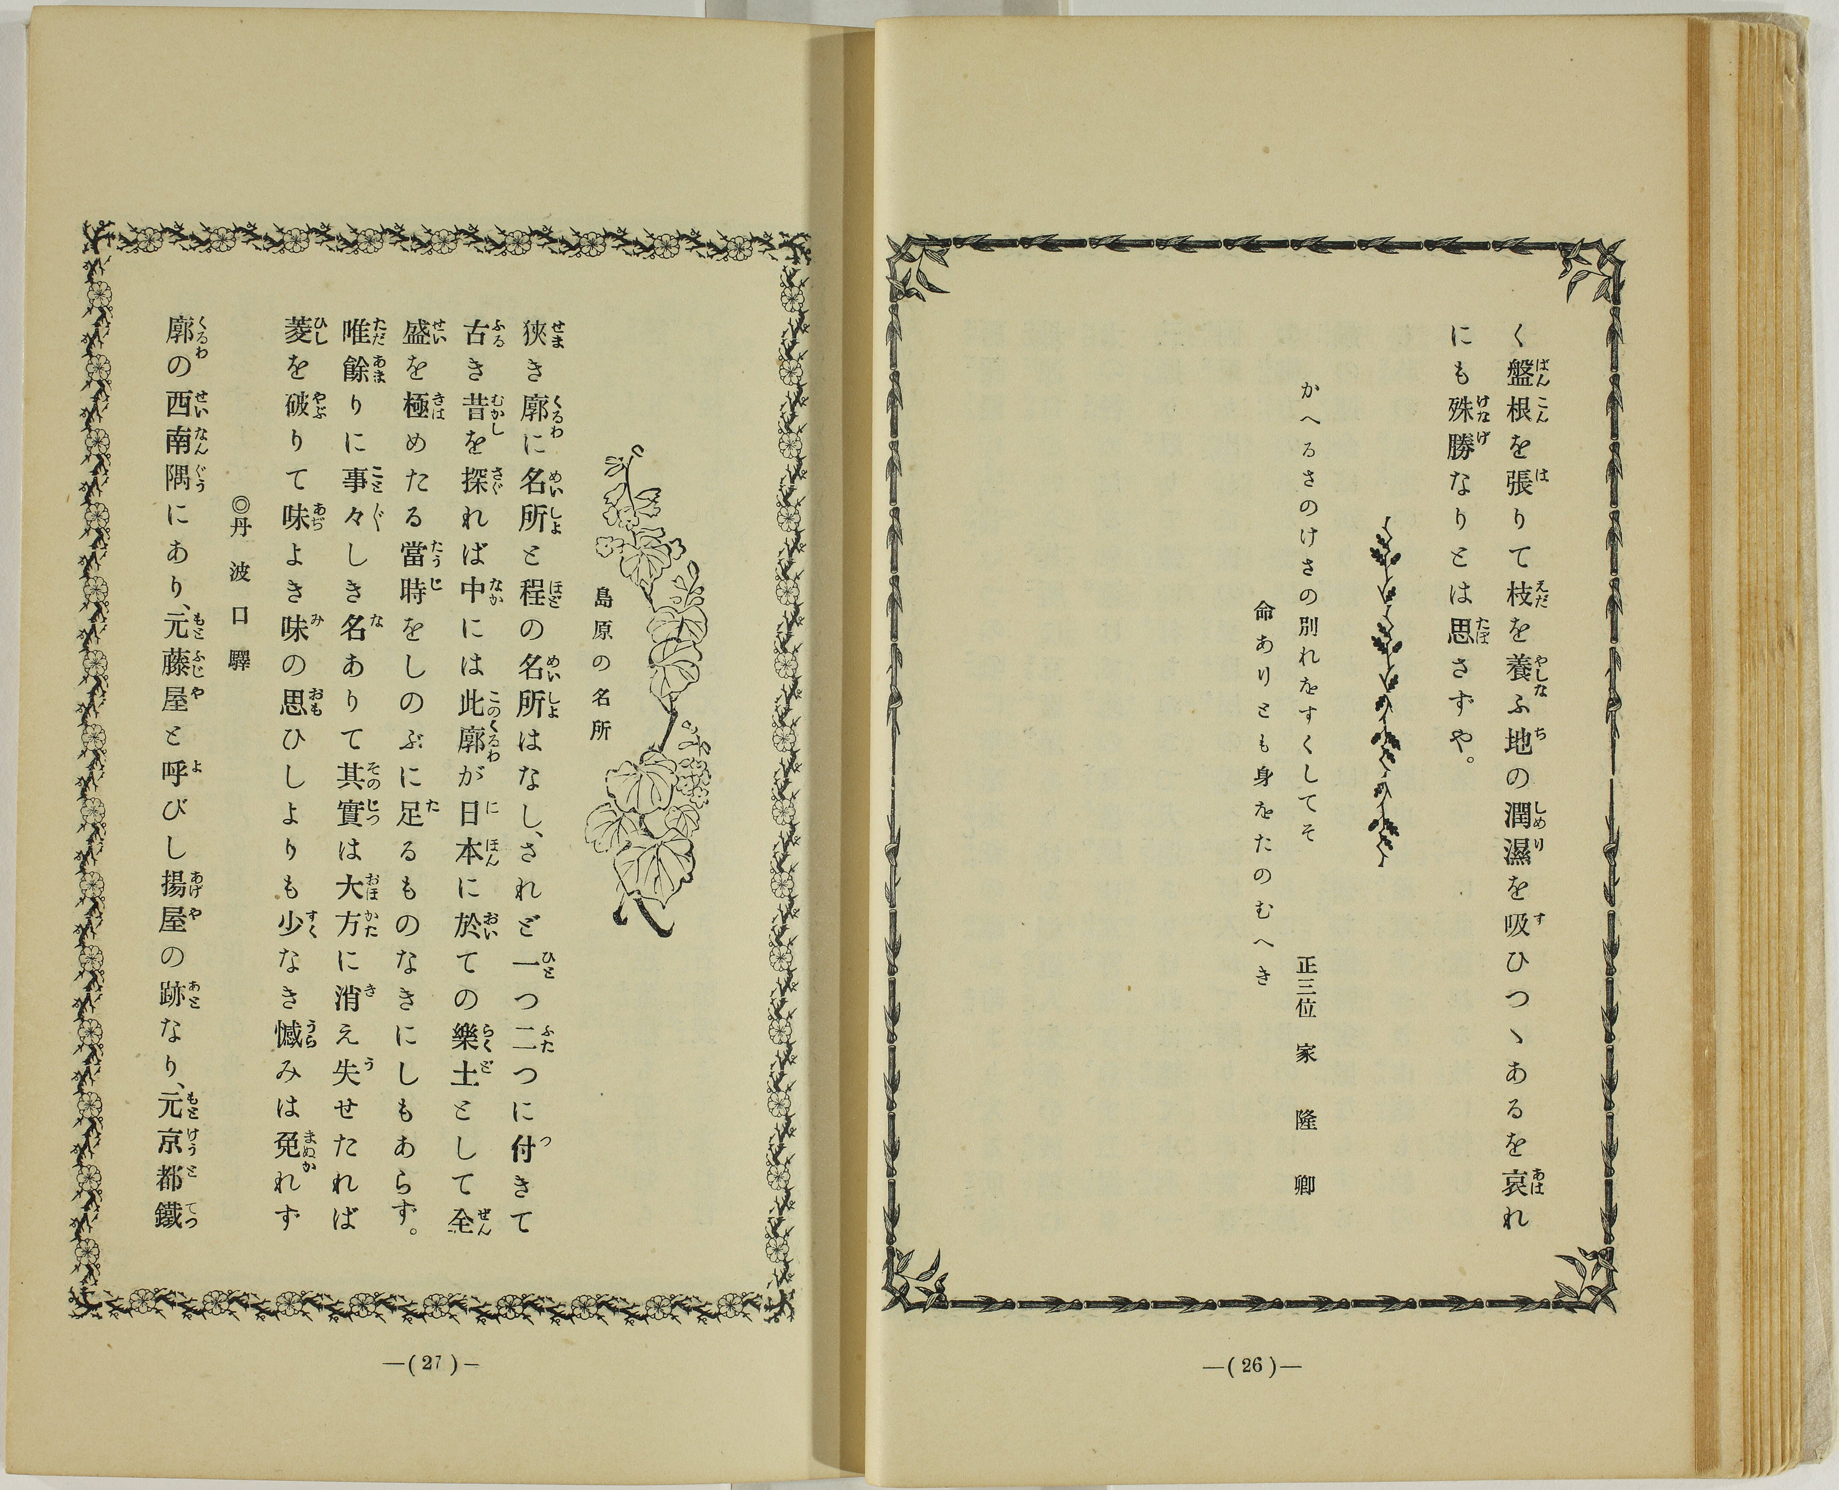 く盤根を張りて枝を養ふ地の潤濕を吸ひつゝあるを哀れ
にも殊勝なりとは思さずや。
正三位 家隆卿
かへるさのけさの別れをすくしてそ
命ありとも身をたのむへき
—(26)—
島原の名所
狹き廓に名所と程の名所はなし、されど一つ二つに付きて
古き昔を探れば中には此廓が日本に於ての樂土として全
盛を極めたる當時をしのぶに足るものなきにしもあらず。
唯餘りに事々しき名ありて其實は大方に消え失せたれば
菱を破りて味よき味の思ひしよりも少なき憾みは免れず
◎丹波口驛
廓の西南隅にあり、元藤屋と呼びし揚屋の跡なり、元京都鐵
—(27)—